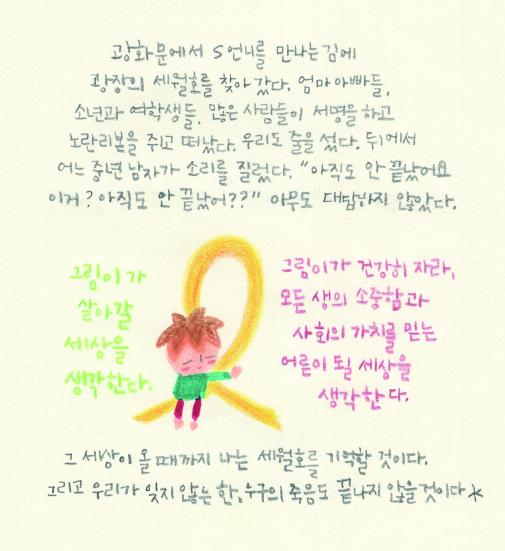 광화문에서 S언니를 만나는 김에
광장의 세월호를 찾아갔다. 엄마아빠들,
소년과 여학생들, 많은 사람들이 서명을 하고
노란리본을 주고 떠났다. 우리도 줄을 섰다. 뒤에서
어느 중년 남자가 소리를 질렀다. "아직도 안 끝났어요
이거? 아직도 안 끝났어??" 아무도 대답하지 않았다.
그림이가
살아갈
세상을
생각한다.
그림이가 건강히 자라,
모든 생의 소중함과
사회의 가치를 믿는
어른이 될 세상을
생각한다.
그 세상이 올 때까지 나는 세월호를 기억할 것이다.
그리고 우리가 잊지 않는 한, 누구의 죽음도 끝나지 않을 것이다